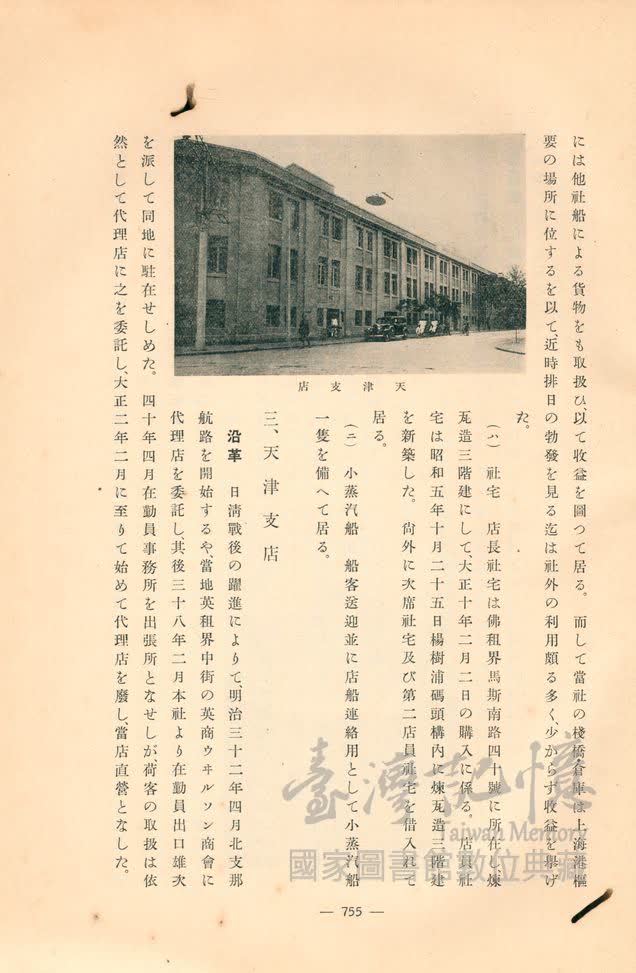 には他社船による貨物をも取扱ひ、以て收益を圖つて居る。　而して當社の棧橋、倉庫は上海港樞
要の場所に位するを以て、近時排日の勃發を見る迄は社外の利用頗る多く、少からず收益を擧げ
た。
天津支店
(ハ)　社宅　店長社宅は佛租界馬斯南路四十號に所在し、煉
瓦造三階建にして、大正十年二月二日の購入に係る。　店員社
宅は昭和五年十月二十五日楊樹浦碼頭構內に煉瓦造三階建
を新築した。　尙外に次席社宅及び第二店員社宅を借入れて
居る。
(ニ)　小蒸汽船　船客送迎並に店船連絡用として小蒸汽船
一隻を備へて居る。
三、天津支店
沿革　日淸戰後の躍進によりて、明治三十二年四月北支那
航路を開始するや、當地英租界中街の英商ウヰルソン商會に
代理店を委託し、其後三十八年二月本社より在勤員出口雄次
を派して同地に駐在せしめた。　四十年四月在勤員事務所を出張所となせしが、荷客の取扱は依
然として代理店に之を委託し、大正二年二月に至りて始めて代理店を廢し、當店直營となした。
— 755 —
臺灣記憶
Taiwan Memory
國家圖書館數位典藏